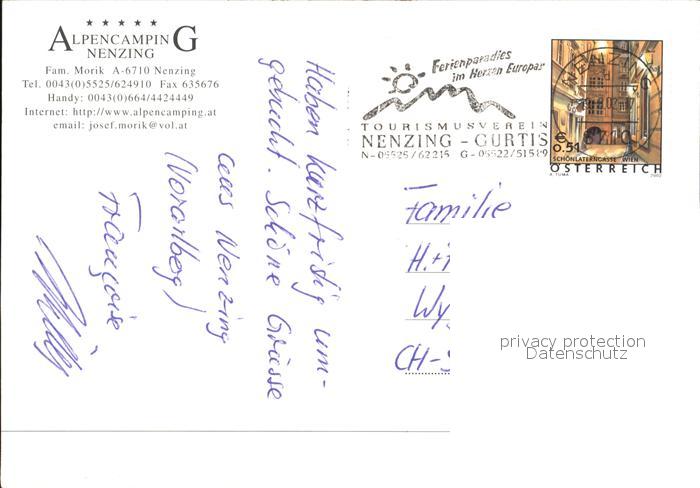 ★ ★ ★ ★ ★
ALPENCAMPING
NENZING
Fam. Morik A-6710 Nenzing
Tel. 0043(0)5525/624910 Fax 635676
Handy: 0043(0)664/4424449
Internet: http://www.alpencamping.at
email: josef.morik@vol.at
Haben kurzfristig um-
gebucht. Schöne Grüsse
aus Nenzing
(Vorarlberg)
Françoise
Ferienparadies
im Herzen Europas
TOURISMUSVEREIN
NENZING - GURTIS
N-05525/62215 G-05522/51549
€
0.51
SCHÖNLATERNGASSE WIEN
ÖSTERREICH
A. TUMA 2002
Familie
H.+
Wy
CH-
privacy protection
Datenschutz